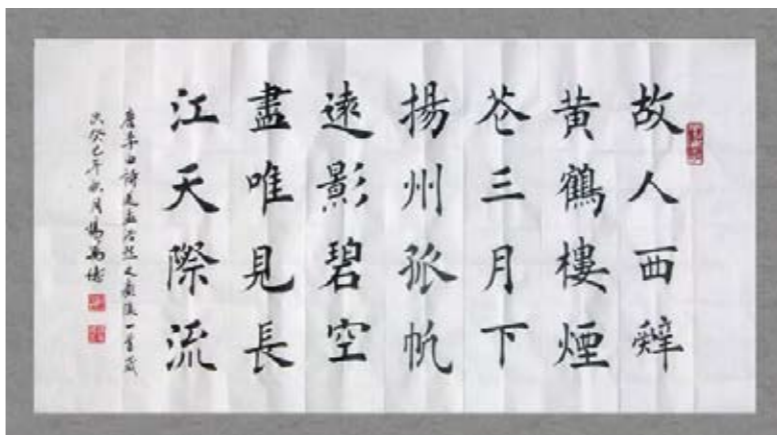 故人西辤
黄鶴樓煙
花三月下
揚州孤帆
遠影碧空
盡唯見長
江天際流
唐李白詩送孟浩然之廣陵一首歲
次癸巳年秋月楊